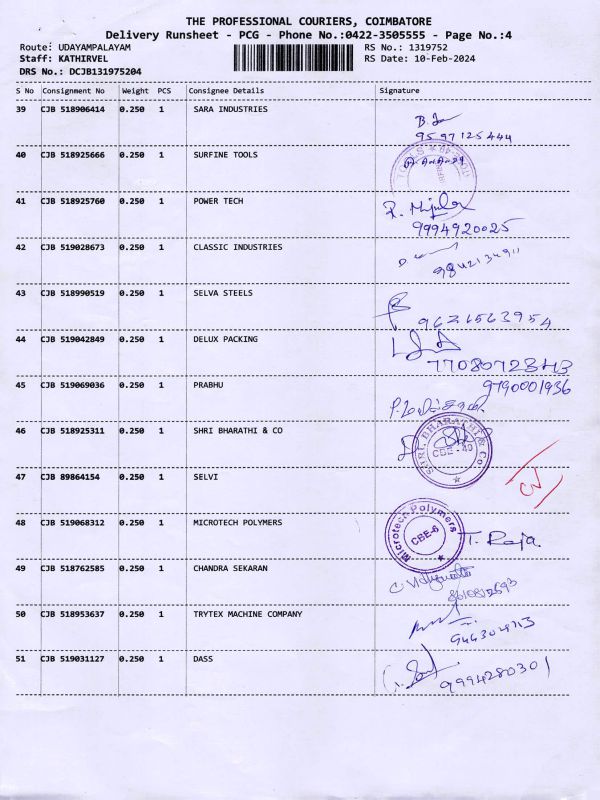 THE PROFESSIONAL COURIERS, COIMBATORE
Delivery Runsheet - PCG - Phone No.:0422-3505555 - Page No.:4
Route: UDAYAMPALAYAM RS No.: 1319752
Staff: KATHIRVEL RS Date: 10-Feb-2024
DRS No.: DCJB131975204
S No Consignment No Weight PCS Consignee Details Signature
39 CJB 518906414 0.250 1 SARA INDUSTRIES
9597125444
40 CJB 518925666 0.250 1 SURFINE TOOLS
41 CJB 518925760 0.250 1 POWER TECH
9994920025
42 CJB 519028673 0.250 1 CLASSIC INDUSTRIES
9842134911
43 CJB 518990519 0.250 1 SELVA STEELS
9621563954
44 CJB 519042849 0.250 1 DELUX PACKING
7708072343
45 CJB 519069036 0.250 1 PRABHU 9790001936
46 CJB 518925311 0.250 1 SHRI BHARATHI & CO
SHRI. BHARATHI & Co
CBE - 49
47 CJB 89864154 0.250 1 SELVI
48 CJB 519068312 0.250 1 MICROTECH POLYMERS
Microtech Polymers
CBE-6
T. Raja.
49 CJB 518762585 0.250 1 CHANDRA SEKARAN
50 CJB 518953637 0.250 1 TRYTEX MACHINE COMPANY
51 CJB 519031127 0.250 1 DASS
9994280301